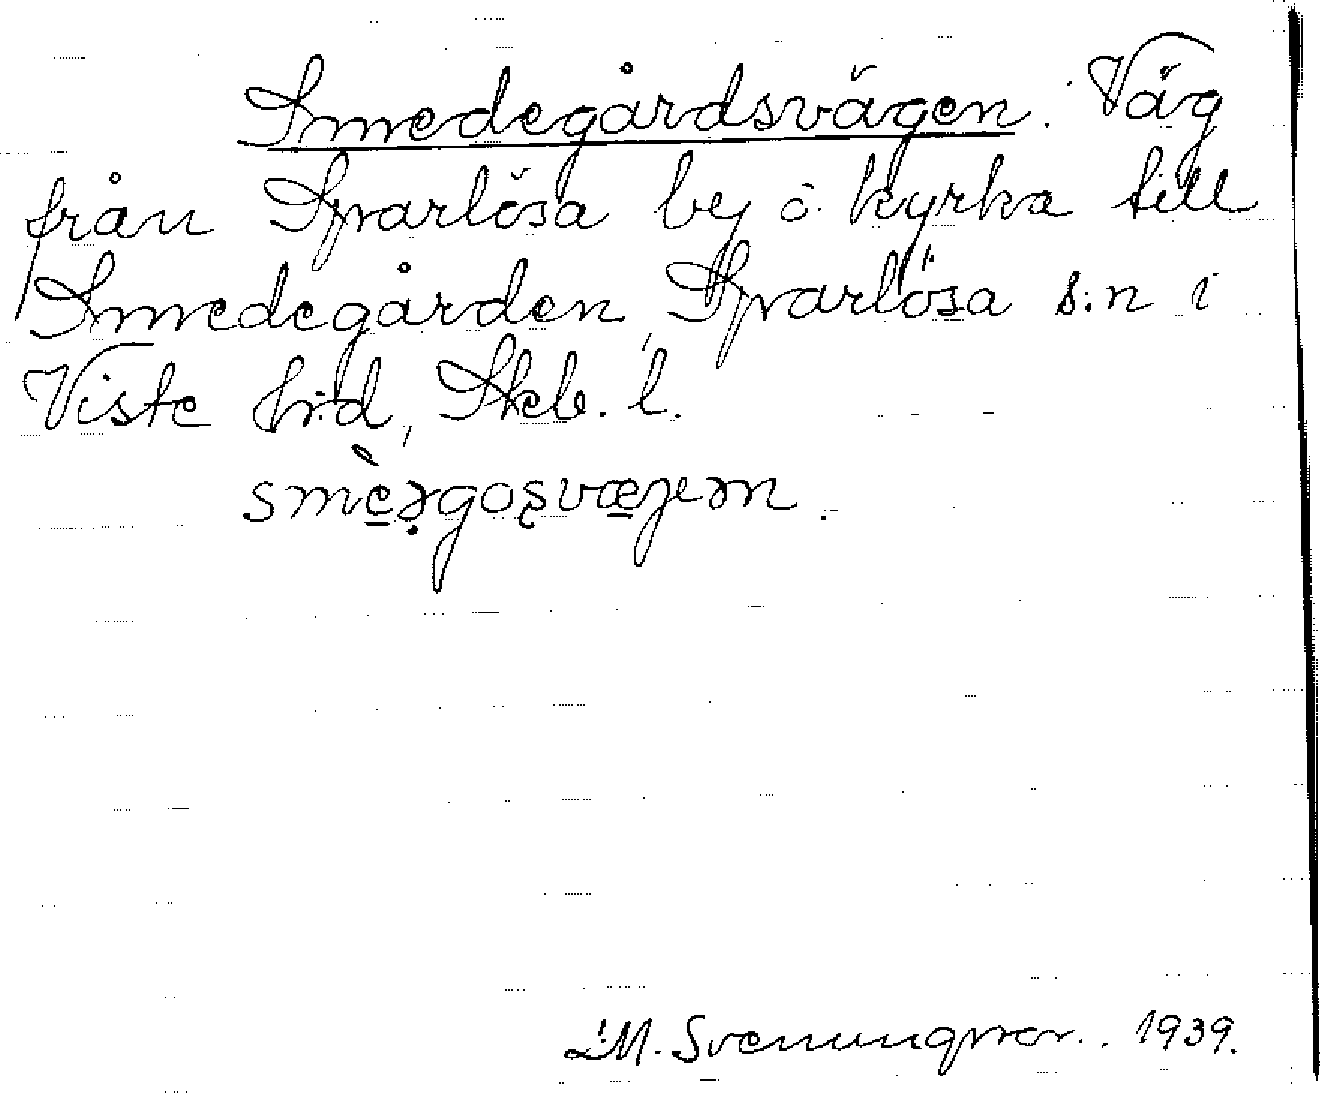 Smedegårdsvägen. Väg
från Sparlösa by o. kyrka till
Smedegården, Sparlösa s:n i
Viste h:d, Skb. l.
smèǝ̣rgoʂvæjǝn.
M. Svenungsson. 1939.